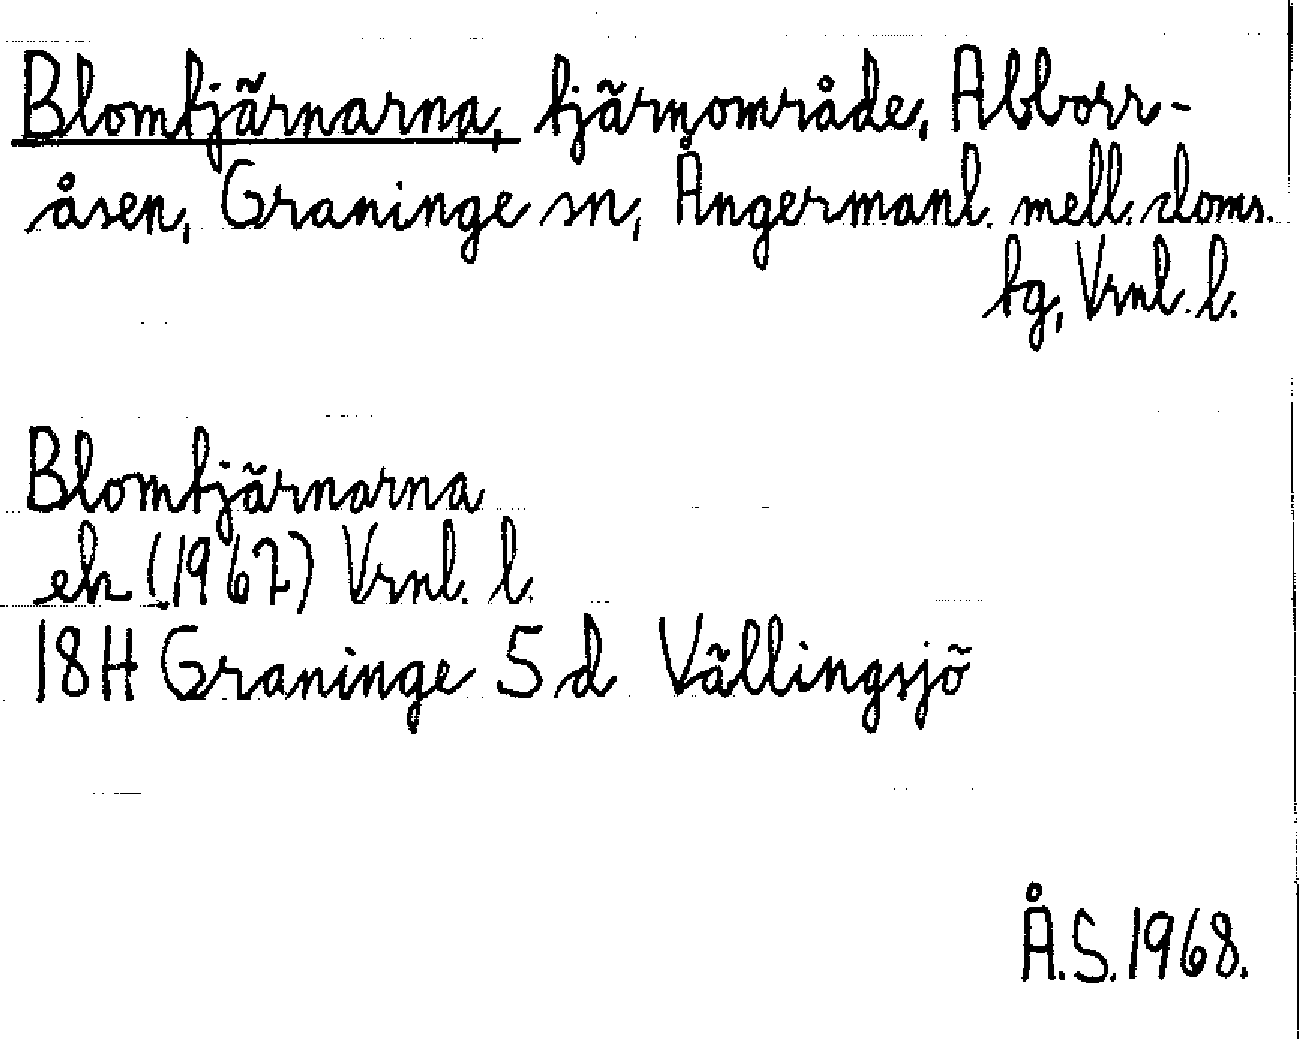 Blomtjärnarna, tjärnområde, Abborr-
åsen, Graninge sn, Ångermanl. mell. doms.
tg, Vrnl. l.
Blomtjärnarna
ek (1967) Vrnl. l.
18H Graninge 5 d Vällingsjö
Å.S. 1968.